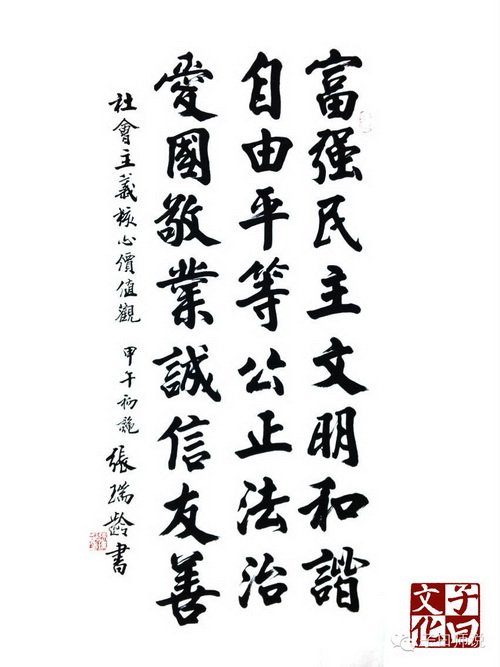 富强民主文明和諧
自由平等公正法治
愛國敬業誠信友善
社會主義核心價值觀 甲午初龍 張瑞齡書
子曰文化
子曰师说